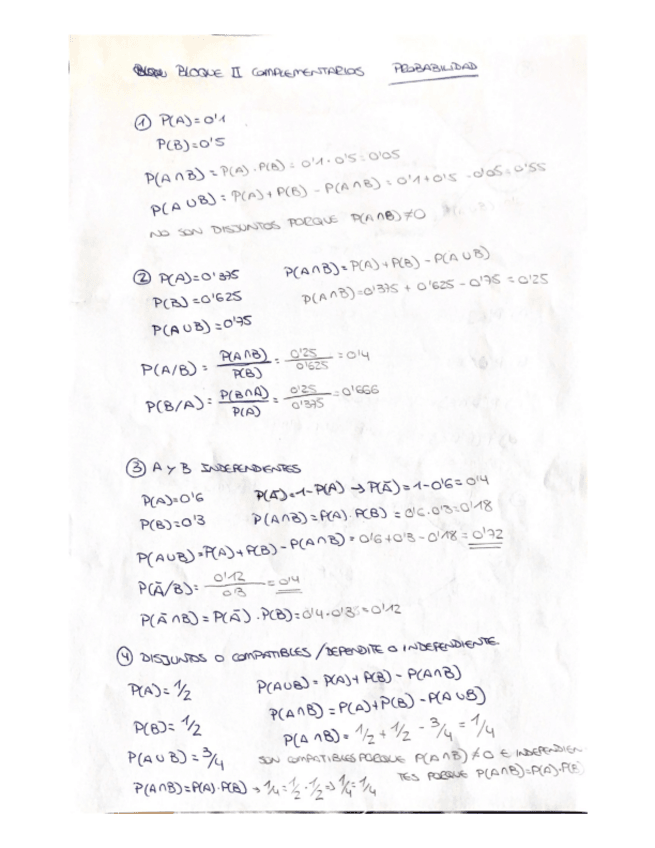 BLOQUE II COMPLEMENTARIOS PROBABILIDAD
① P(A)=0'1
P(B)=0'5
P(A∩B)=P(A)·P(B)=0'1·0'5=0'05
P(A∪B)=P(A)+P(B)-P(A∩B)=0'1+0'5-0'05=0'55
NO SON DISJUNTOS PORQUE P(A∩B)≠0
② P(A)=0'375 P(A∩B)=P(A)+P(B)-P(A∪B)
P(B)=0'625 P(A∩B)=0'375+0'625-0'75=0'25
P(A∪B)=0'75
P(A/B)=P(A∩B)/P(B)=0'25/0'625=0'4
P(B/A)=P(B∩A)/P(A)=0'25/0'375=0'666
③ A Y B INDEPENDIENTES
P(A)=0'6 P(Ā)=1-P(A)→P(Ā)=1-0'6=0'4
P(B)=0'3 P(A∩B)=P(A)·P(B)=0'6·0'3=0'18
P(A∪B)=P(A)+P(B)-P(A∩B)=0'6+0'3-0'18=0'72
P(Ā/B)=0'12/0'3=0'4
P(Ā∩B)=P(Ā)·P(B)=0'4·0'3=0'12
④ DISJUNTOS O COMPATIBLES/DEPENDITE O INDEPENDIENTE
P(A)=1/2 P(A∪B)=P(A)+P(B)-P(A∩B)
P(A∩B)=P(A)+P(B)-P(A∪B)
P(B)=1/2 P(A∩B)=1/2+1/2-3/4=1/4
P(A∪B)=3/4 SON COMPATIBLES PORQUE P(A∩B)≠0 E INDEPENDIEN
TES PORQUE P(A∩B)=P(A)·P(B)
P(A∩B)=P(A)·P(B)→1/4=1/2·1/2→1/4=1/4